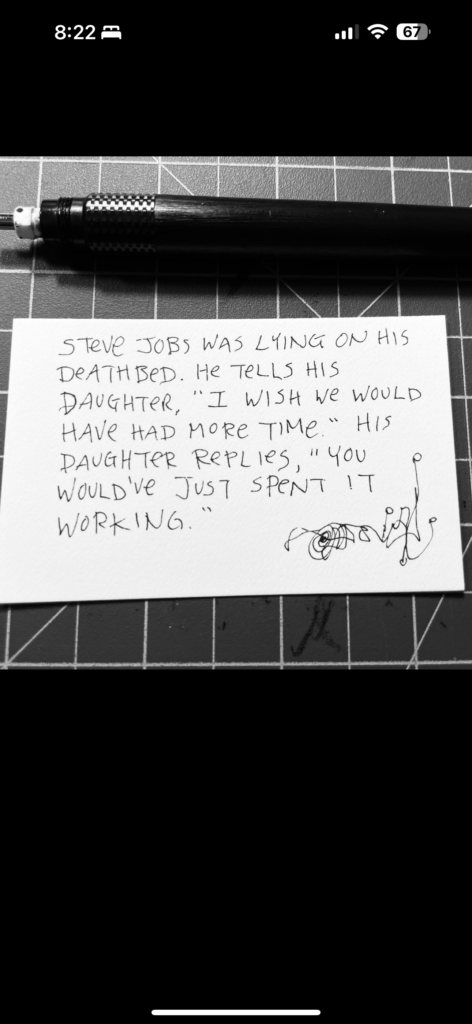 8:22
67
STEVE JOBS WAS LYING ON HIS
DEATHBED. HE TELLS HIS
DAUGHTER, "I WISH WE WOULD
HAVE HAD MORE TIME." HIS
DAUGHTER REPLIES, "YOU
WOULD'VE JUST SPENT IT
WORKING."